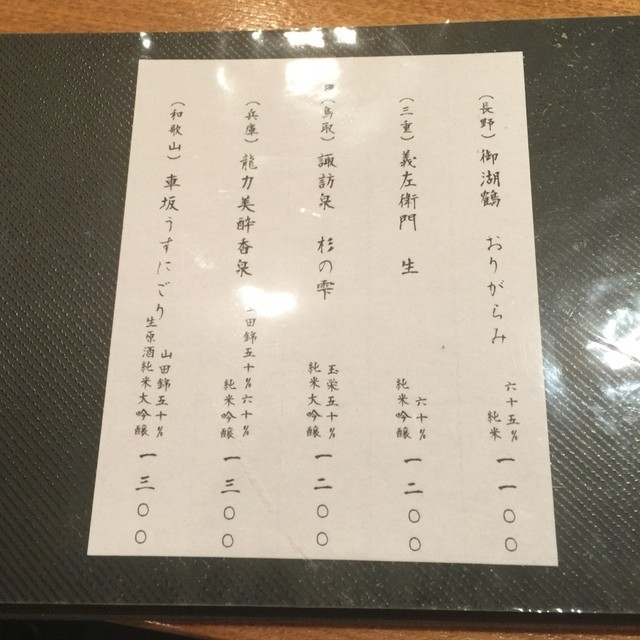 （長野）御湖鶴　おりがらみ　六十五％　純米　一一〇〇
（三重）義左衛門　生　六十％　純米吟醸　一二〇〇
（鳥取）諏訪泉　杉の雫　玉栄五十％　純米大吟醸　一二〇〇
（兵庫）龍力美酔香泉　田錦五十％六十％　純米吟醸　一三〇〇
（和歌山）車坂うすにごり　山田錦五十％　生原酒純米大吟醸　一三〇〇